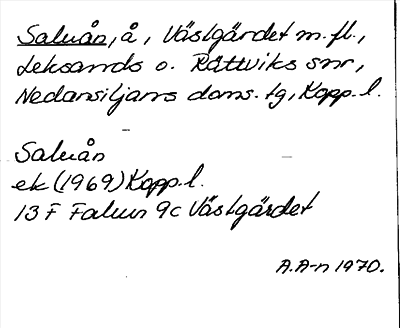 Saluån, å, Västgärdet m.fl.,
Leksands o. Rättviks snr,
Nedansiljans doms. tg, Kopp. l.
Saluån
ek (1969) Kopp. l.
13 F Falun 9c Västgärdet
A.A-n 1970.